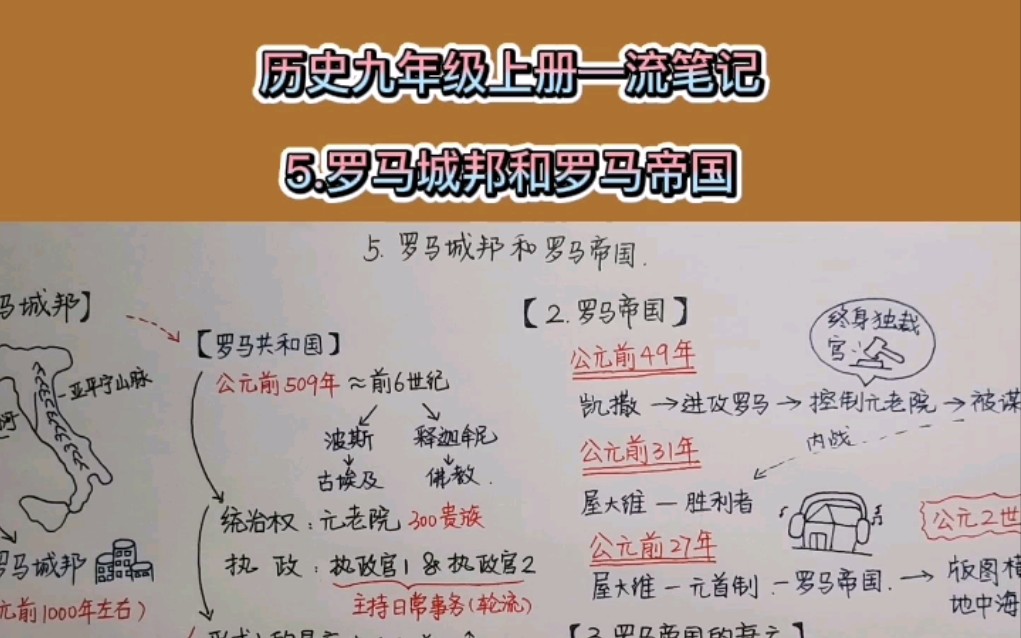 历史九年级上册一流笔记
5.罗马城邦和罗马帝国
5. 罗马城邦和罗马帝国.
马城邦】
亚平宁山脉
河
罗马城邦
元前1000年左右)
【罗马共和国】
公元前509年 ≈前6世纪
波斯 释迦牟尼
古埃及 佛教.
统治权: 元老院 300贵族
执 政: 执政官1 & 执政官2
主持日常事务(轮流)
【2.罗马帝国】
终身独裁
官
公元前49年
凯撒 → 进攻罗马 → 控制元老院 → 被谋
内战
公元前31年
屋大维 — 胜利者
公元前27年
屋大维 — 元首制 — 罗马帝国. → 版图横
地中海
公元2世
【3.罗马帝国的